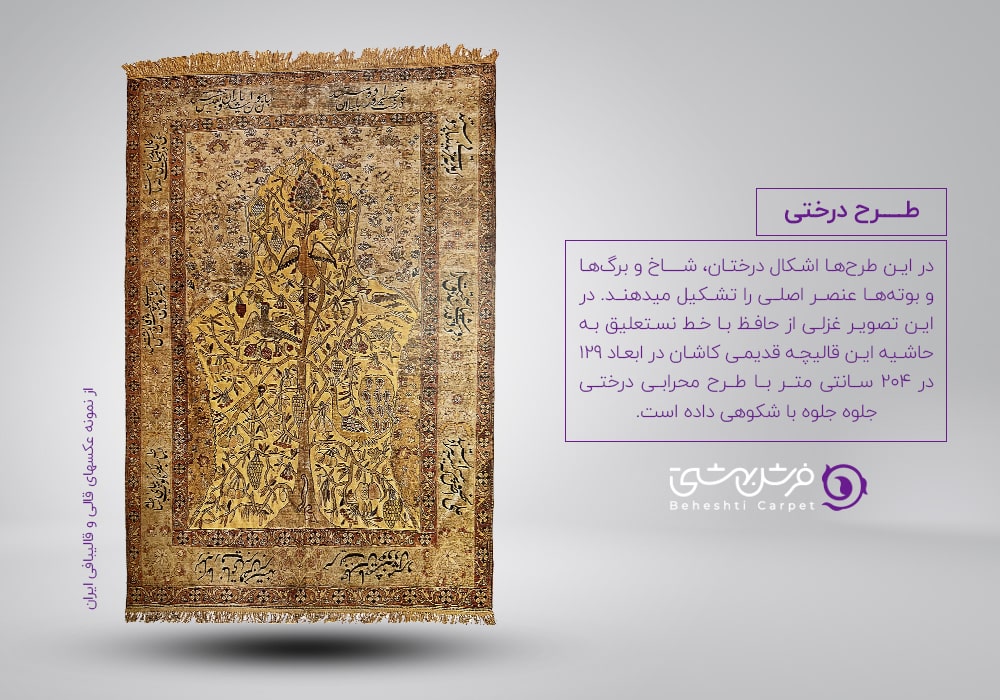 طرح درختی
در این طرح‌ها اشکال درختان، شاخ و برگ‌ها
و بوته‌ها عنصر اصلی را تشکیل میدهند. در
این تصویر غزلی از حافظ با خط نستعلیق به
حاشیه این قالیچه قدیمی کاشان در ابعاد ۱۲۹
در ۲۰۴ سانتی متر با طرح محرابی درختی
جلوه جلوه با شکوهی داده است.
فرش بهشتی
Beheshti Carpet
از نمونه عکسهای قالی و قالیبافی ایران